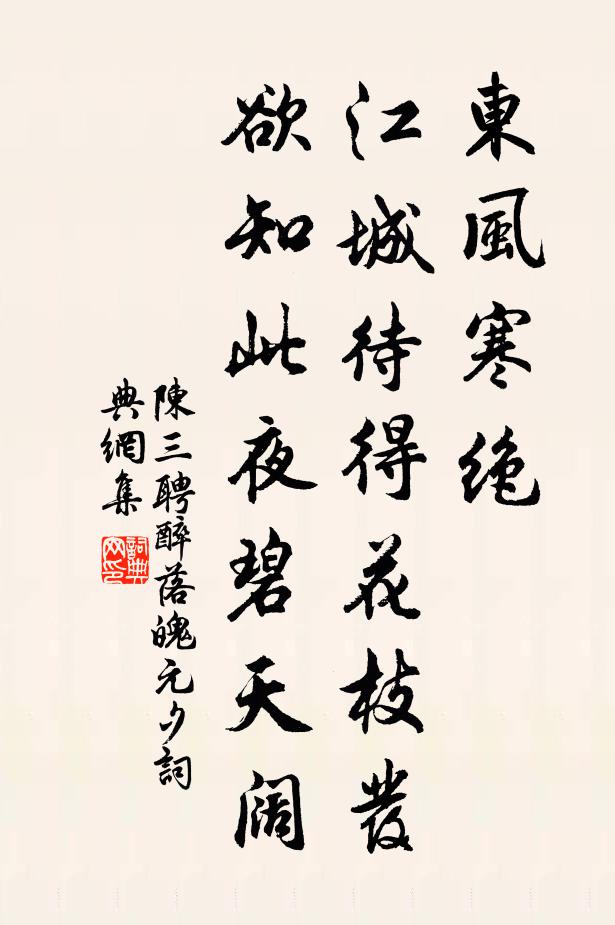 東風寒绝
江城待得花枝發
欲知此夜碧天阔
陳三聘醉落魄元夕詞
典網集
詞典网印